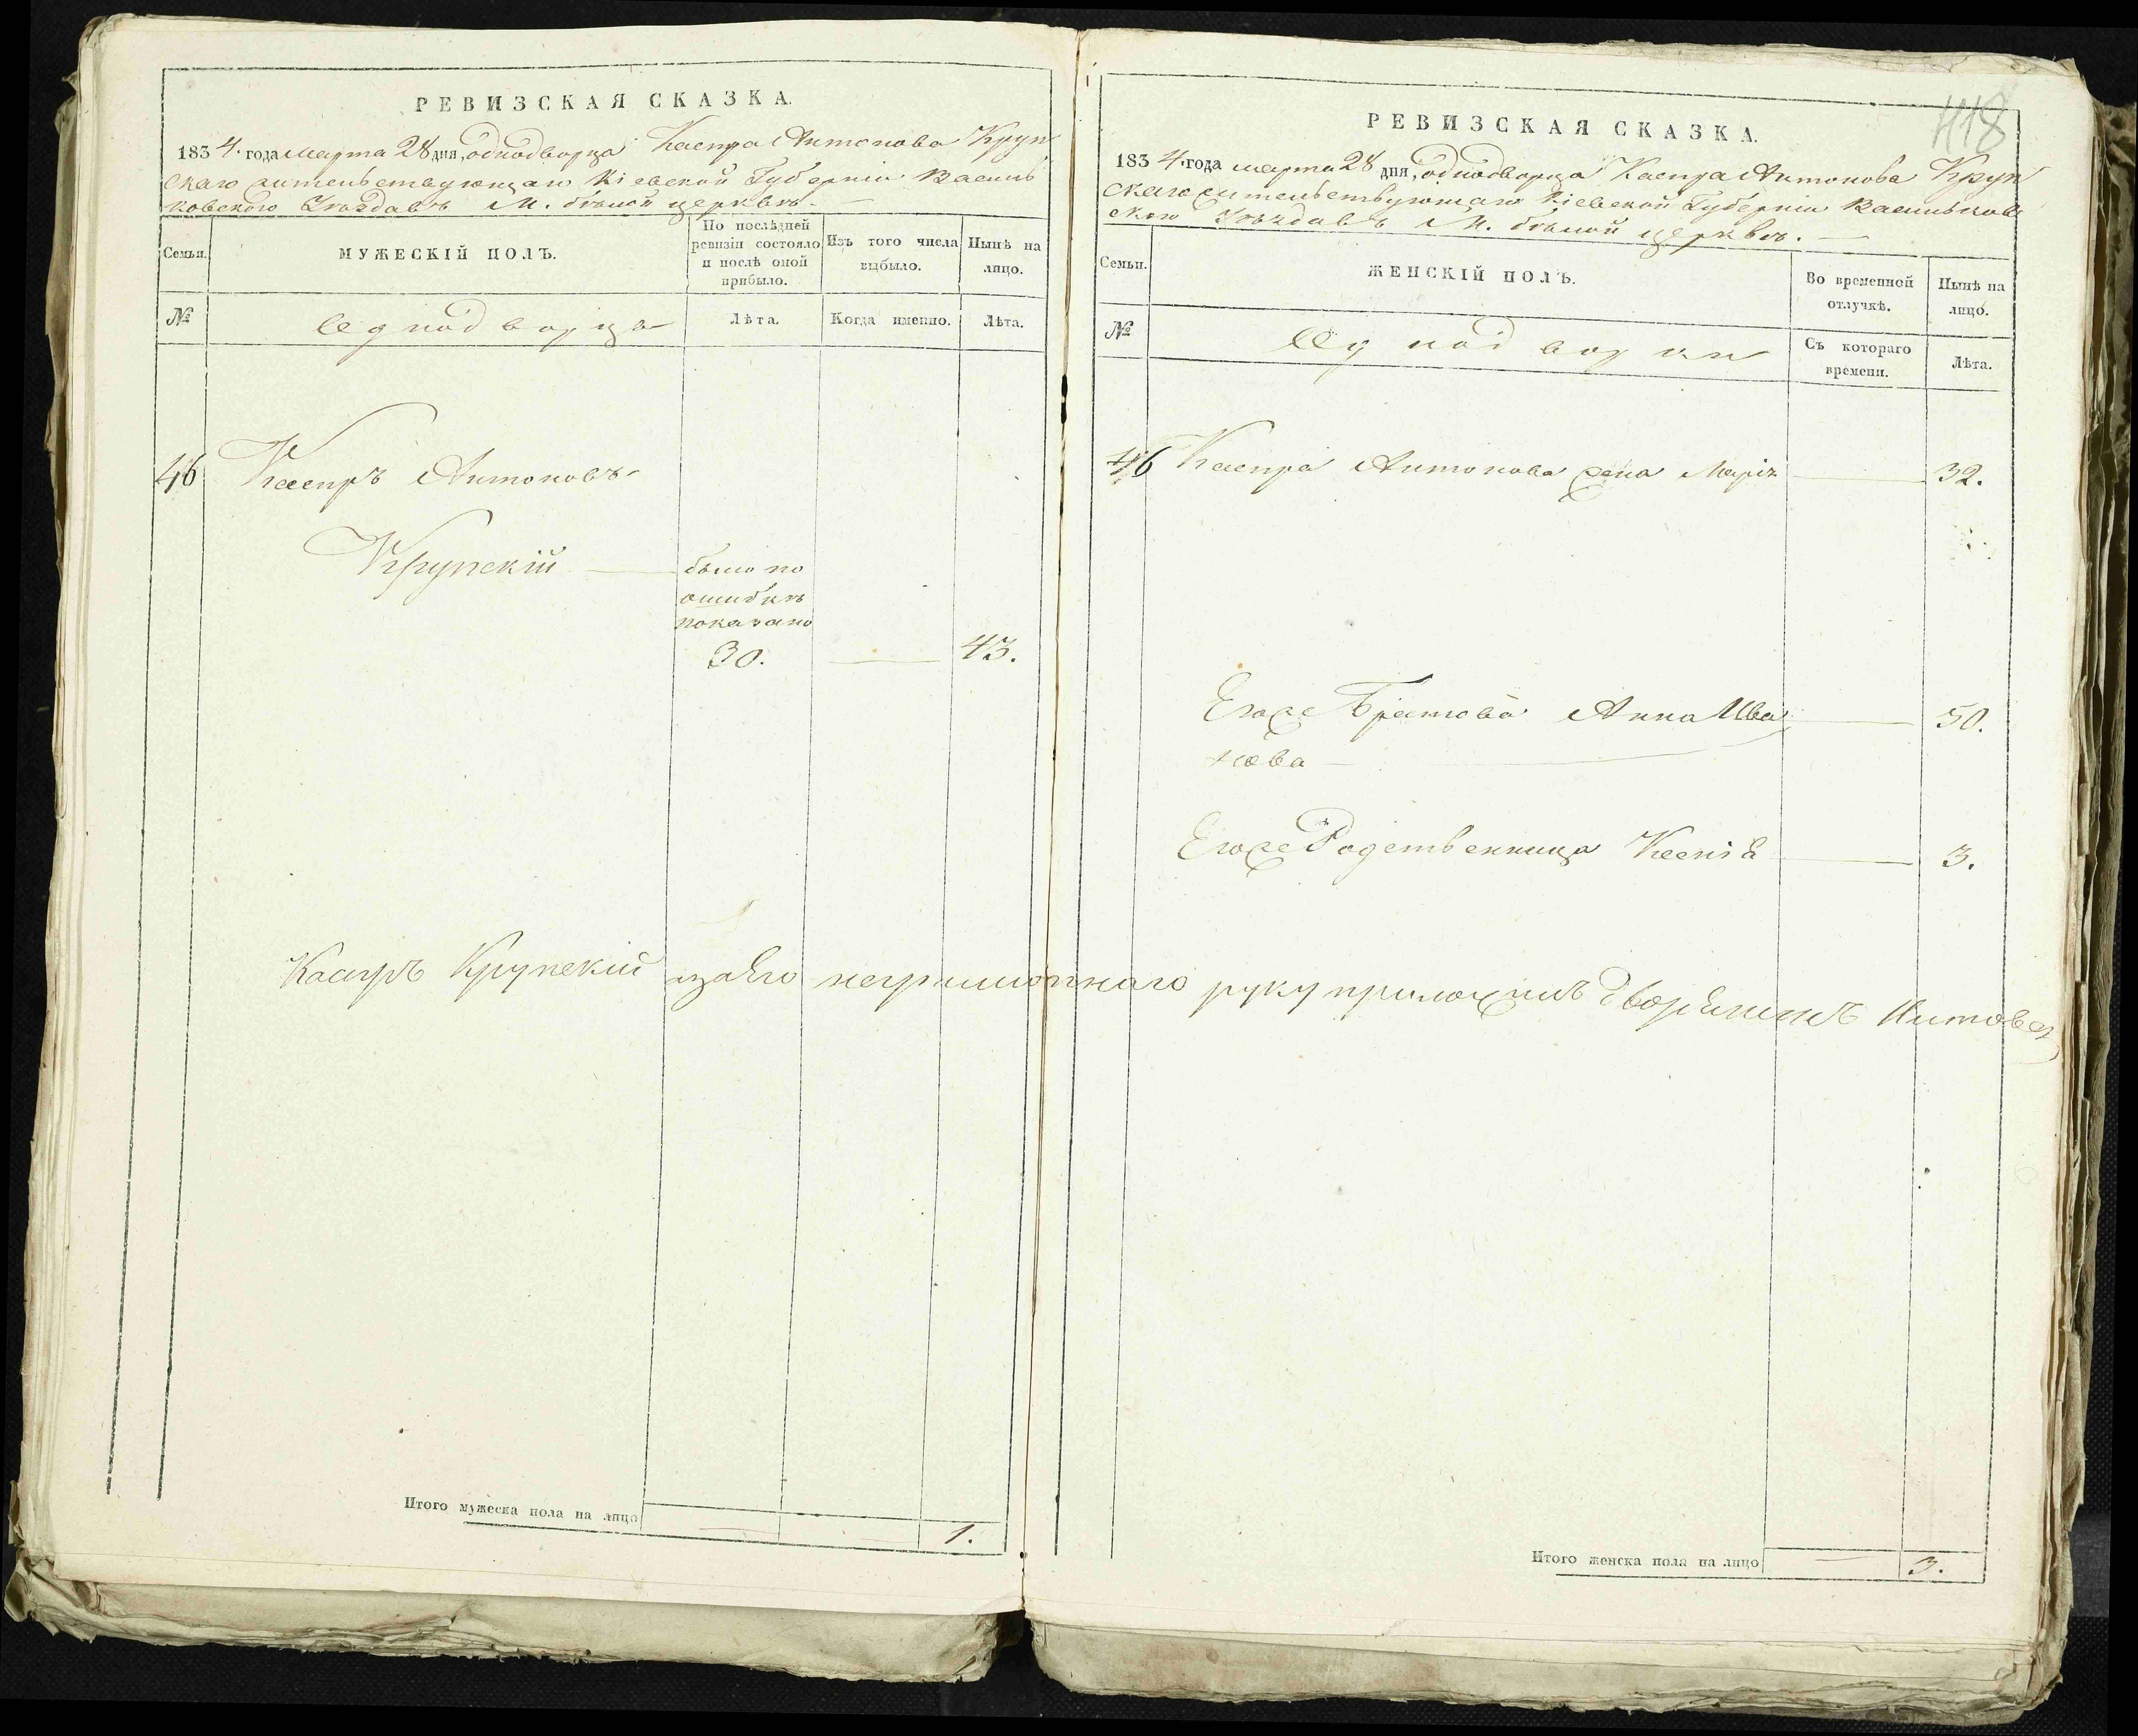 РЕВИЗСКАЯ СКАЗКА.
1834. года марта 28 дня, однодворца Каспра Антонова Круп
скаго жительствующаго Кіевской Губерніи Василь
ковского Уѣзда въ М. бѣлой церквѣ.
Семьи.
МУЖЕСКІЙ ПОЛЪ.
По послѣдней
ревизіи состояло
и послѣ оной
прибыло.
Изъ того числа
выбыло.
Нынѣ на
лицо.
№
Однодворца
Лѣта.
Когда именно.
Лѣта.
46
Каспръ Антоновъ
Крупскій
было по
ошибкѣ
показано
30.
43.
Каспръ Крупскій за его неграмотнаго руку приложилъ Дворянинъ
Итого мужеска пола на лицо
1.
418
РЕВИЗСКАЯ СКАЗКА.
1834. года марта 28 дня, однодворца Каспра Антонова Круп
скаго жительствующаго Кіевской Губерніи Васильков
ского Уѣзда въ М. бѣлой церквѣ.
Семьи.
ЖЕНСКІЙ ПОЛЪ.
Во временной
отлучкѣ.
Нынѣ на
лицо.
№
Однодворки
Съ котораго
времени.
Лѣта.
46
Каспра Антонова жена Марія
32.
Егоже Братова Анна Ива
нова
50.
Егоже Родственница Ксенія
3.
Итого женска пола на лицо
3.